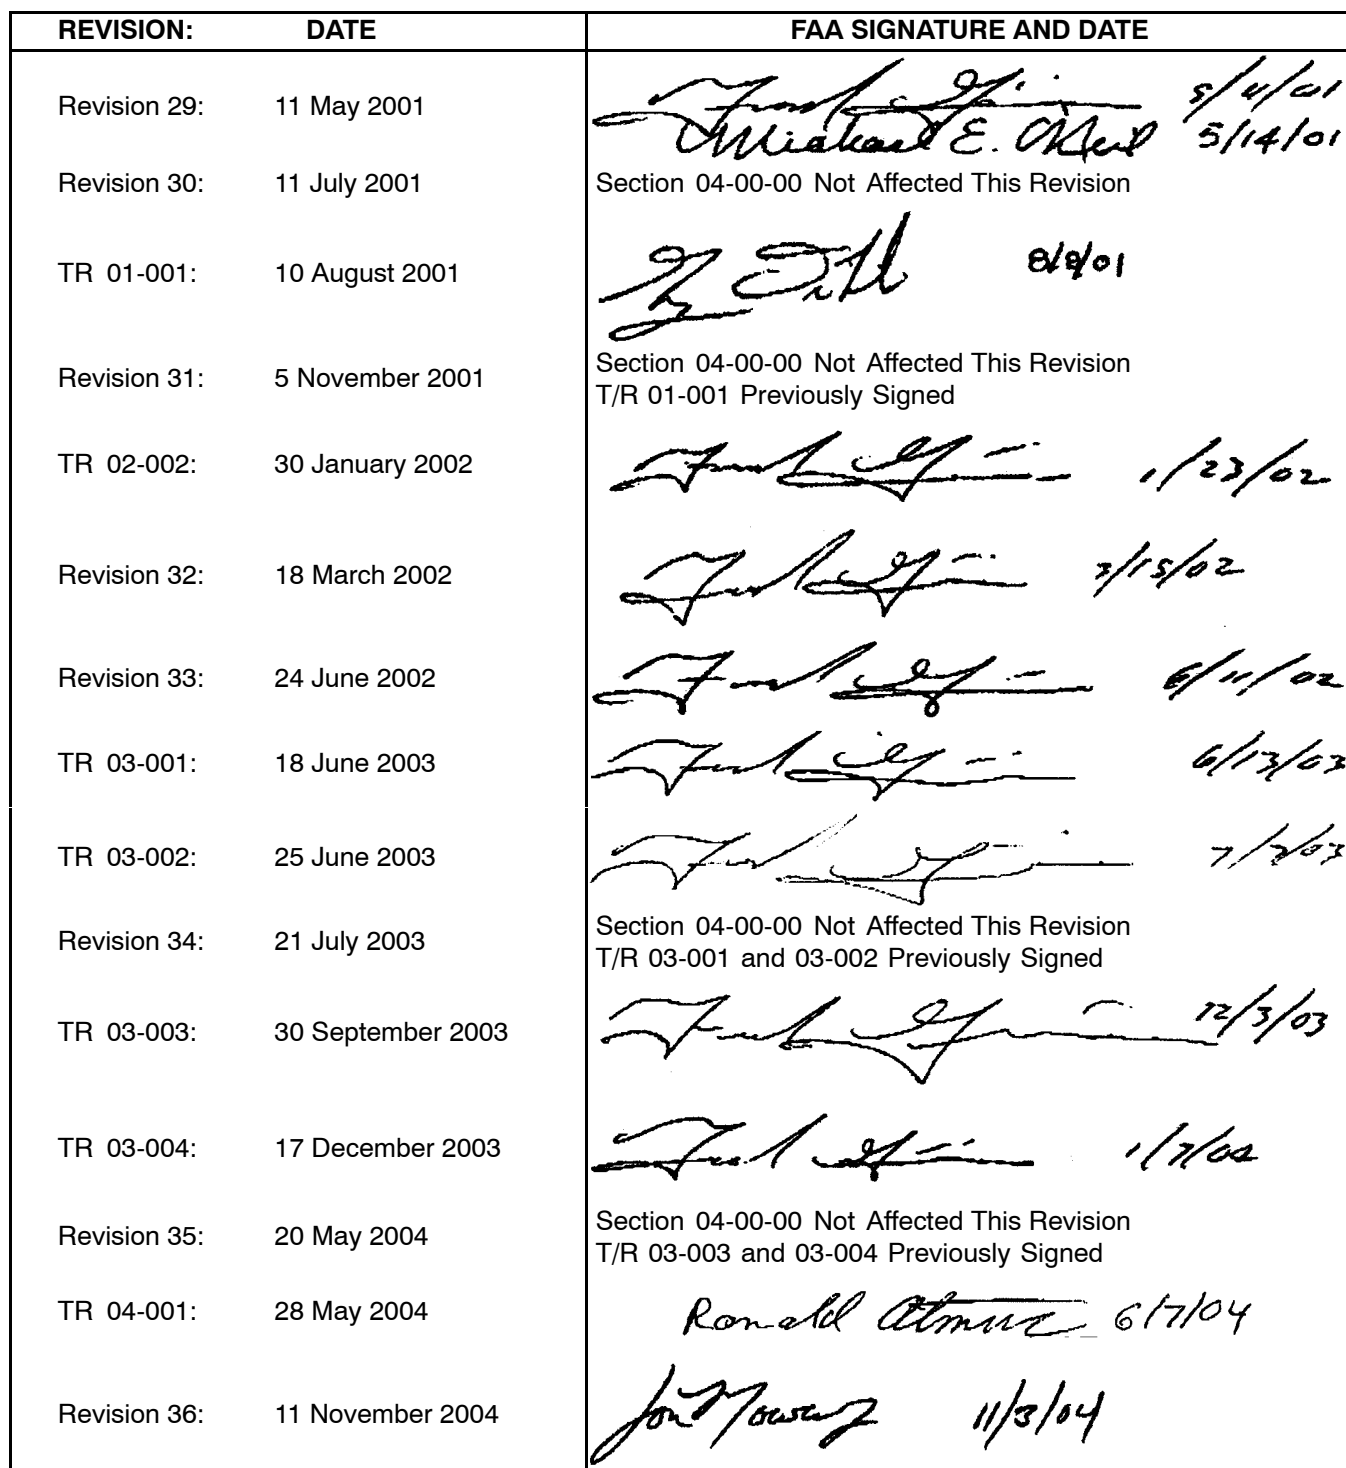 REVISION: DATE FAA SIGNATURE AND DATE
Revision 29: 11 May 2001 5/4/01
Michael E. O'Neil 5/14/01
Revision 30: 11 July 2001 Section 04-00-00 Not Affected This Revision
TR 01-001: 10 August 2001 8/8/01
Revision 31: 5 November 2001 Section 04-00-00 Not Affected This Revision
T/R 01-001 Previously Signed
TR 02-002: 30 January 2002 1/23/02
Revision 32: 18 March 2002 3/15/02
Revision 33: 24 June 2002 6/11/02
TR 03-001: 18 June 2003 6/13/03
TR 03-002: 25 June 2003 7/2/03
Revision 34: 21 July 2003 Section 04-00-00 Not Affected This Revision
T/R 03-001 and 03-002 Previously Signed
TR 03-003: 30 September 2003 12/3/03
TR 03-004: 17 December 2003 1/7/04
Revision 35: 20 May 2004 Section 04-00-00 Not Affected This Revision
T/R 03-003 and 03-004 Previously Signed
TR 04-001: 28 May 2004 Ronald 6/7/04
Revision 36: 11 November 2004 Jon 11/3/04